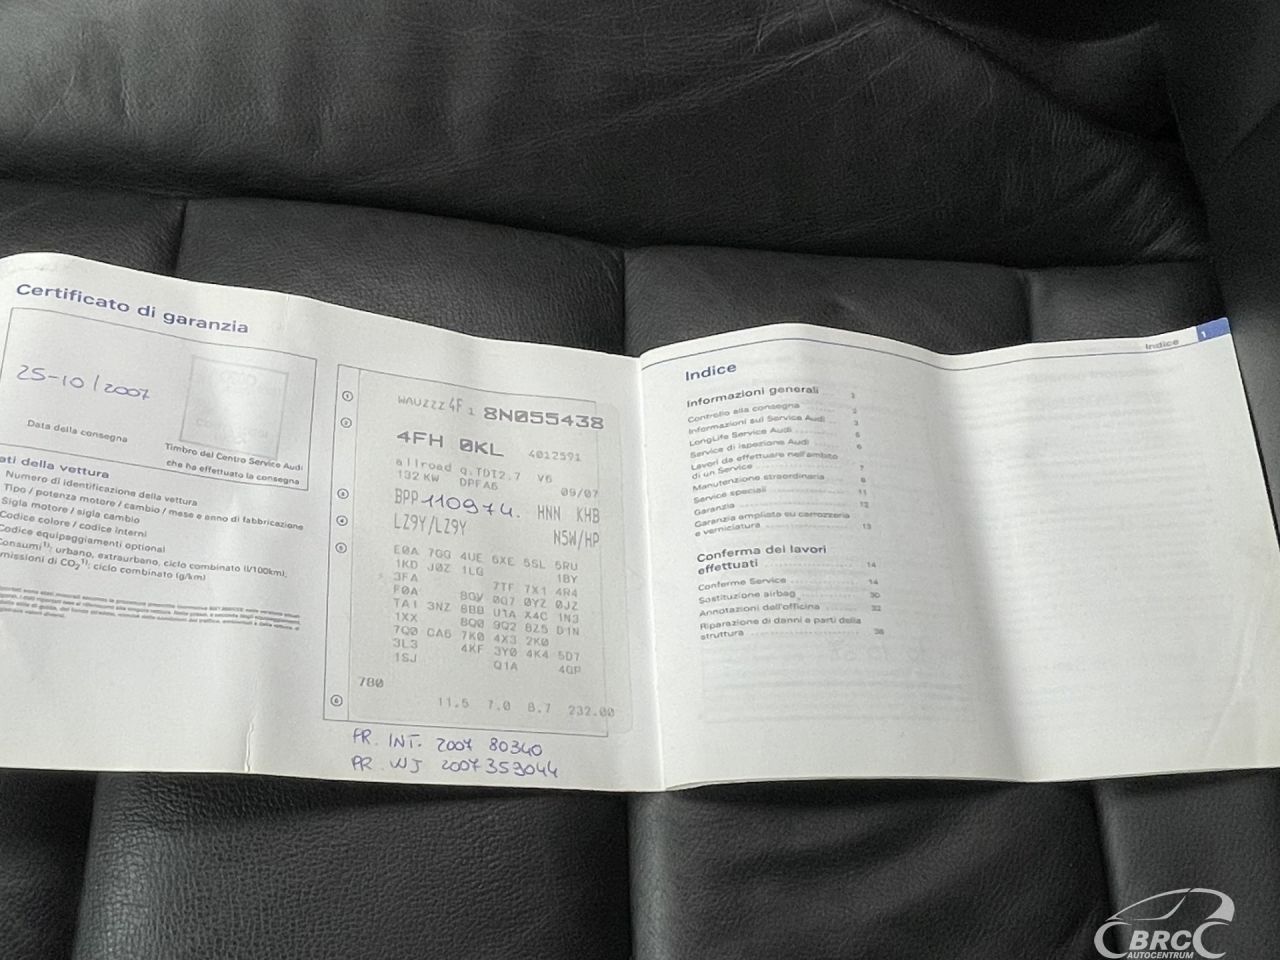 Certificato di garanzia
25-10/2007
Data della consegna
Timbro del Centro Service Audi
che ha effettuato la consegna
ati della vettura
Numero di identificazione della vettura
Tipo / potenza motore / cambio / mese e anno di fabbricazione
Sigla motore / sigla cambio
Codice colore / codice interni
Codice equipaggiamenti optional
Consumi 1): urbano, extraurbano, ciclo combinato (l/100km),
missioni di CO2 1): ciclo combinato (g/km)
1 WAUZZZ 4F 1 8N055438
2 4FH 0KL 4012591
allroad q.TDI2.7 V6
132 KW DPFA6 09/07
3 BPP 110974. HNN KHB
4 LZ9Y/LZ9Y N5W/HP
5 E0A 7GG 4UE 6XE 5SL 5RU
1KD J0Z 1LG 1BY
3FA 7TF 7X1 4R4
F0A 8GV 0G7 0YZ 0JZ
TA1 3NZ 8BB U1A X4C 1N3
1XX 8Q0 9Q2 8Z5 D1N
7Q0 CA6 7K0 4X3 2K0
3L3 4KF 3Y0 4K4 5D7
1SJ Q1A 4GP
780
6 11.5 7.0 8.7 232.00
PR. INT. 2007 80340
PR. WJ 2007 359044
Indice 1
Indice
Informazioni generali 2
Controllo alla consegna 2
Informazioni sul Service Audi 3
LongLife Service Audi 5
Service di ispezione Audi 6
Lavori da effettuare nell'ambito
di un Service 7
Manutenzione straordinaria 8
Service speciali 11
Garanzia 12
Garanzia ampliata su carrozzeria
e verniciatura 13
Conferma dei lavori
effettuati 14
Conferme Service 14
Sostituzione airbag 30
Annotazioni dell'officina 32
Riparazione di danni a parti della
struttura 38
BRC
AUTOCENTRUM